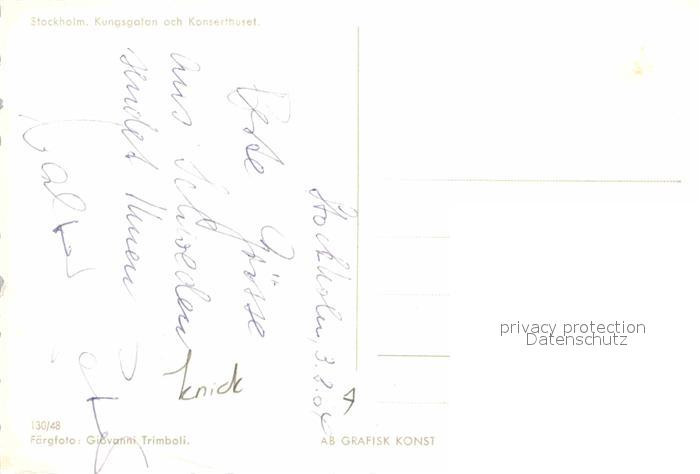 Stockholm. Kungsgatan och Konserthuset.
Stockholm, 3.8.04
Beste Grüsse
aus Schweden
sendet Ihnen
knick
privacy protection
Datenschutz
130/48
Färgfoto: Giovanni Trimboli.
AB GRAFISK KONST